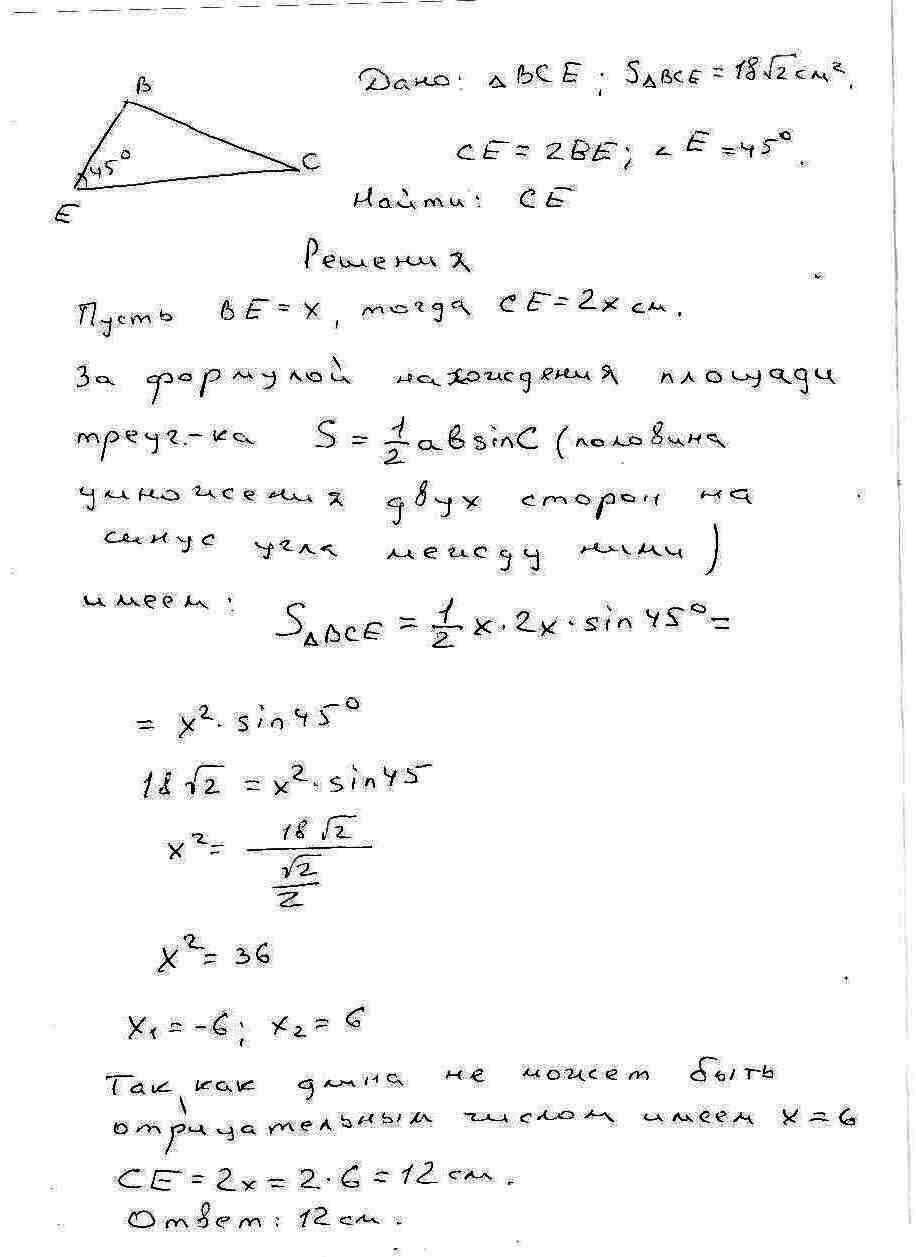 B
45°
C
E
Дано: △BCE; S△BCE = 18√2 см².
CE = 2BE; ∠E = 45°.
Найти: CE
Решения
Пусть BE = x, тогда CE = 2x см.
За формулой нахождения площади
треуг.-ка S = 1/2 ab sinC (половина
умножения двух сторон на
синус угла между ними)
имеем: S△BCE = 1/2 x · 2x · sin 45° =
= x² · sin 45°
18√2 = x² · sin 45
x² = 18√2 / (√2/2)
x² = 36
x₁ = -6; x₂ = 6
Так, как длина не может быть
отрицательным числом имеем x = 6
CE = 2x = 2 · 6 = 12 см.
Ответ: 12 см.